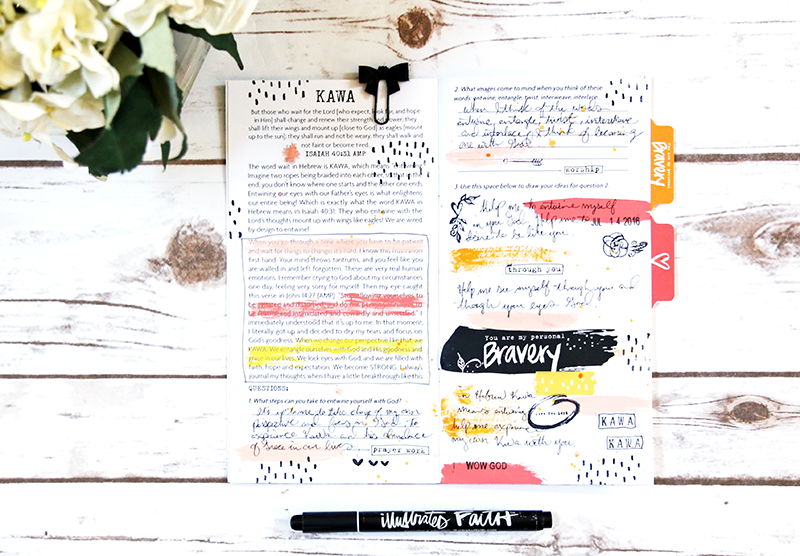 KAWA
But those who wait for the Lord [who expect, look for, and hope
in Him] shall change and renew their strength and power; they
shall lift their wings and mount up [close to God] as eagles [mount
up to the sun]; they shall run and not be weary, they shall walk and
not faint or become tired.
ISAIAH 40:31 AMP
The word wait in Hebrew is KAWA, which means
Imagine two ropes being braided into each other, so that in the
end, you don't know where one starts and the other one ends.
Entwining our eyes with our Father's eyes is what enlightens
our entire being! Which is exactly what the word KAWA in
Hebrew means in Isaiah 40:31. They who entwine with the
Lord's thoughts mount up with wings like eagles! We are wired
by design to entwine!
When you go through a time where you have to be patient
and wait for things to change, it's hard. I know this frustration
first hand. Your mind throws tantrums, and you feel like you
are walled in and left, forgotten. These are very real human
emotions. I remember crying to God about my circumstances
one day, feeling very sorry for myself. Then my eye caught
this verse in John 14:27 [AMP], "Stop allowing yourselves to
be agitated and disturbed; and do not permit yourselves to
be fearful and intimidated and cowardly and unsettled." I
immediately understood that it's up to me. In that moment,
I literally got up and decided to dry my tears and focus on
God's goodness. When we change our perspective like that, we
KAWA. We entangle ourselves with God and His goodness and
grace in our lives. We lock eyes with God, and we are filled with
faith, hope and expectation. We become STRONG. I always
journal my thoughts when I have a little breakthrough like this.
QUESTIONS:
1. What steps can you take to entwine yourself with God?
It's up to me to take charge of my own
perspective and focus on God to
experience Kawa and his abundance
of grace in our lives.
prayer work
2. What images come to mind when you think of these
words: entwine, entangle, twist, interweave, interlace.
When I think of the words
entwine, entangle, twist, interweave
and interlace, I think of becoming
one with God
worship
3. Use this space below to draw your ideas for question 2.
Help me to entwine myself
in you God. Help me to
JUL 14 2016
desire to be like you.
through you
Help me see myself though you and
though your eyes God
You are my personal
Bravery
in Hebrew Kawa
means entwining
help me experience
my own Kawa with you
KAWA
KAWA
WOW GOD
Bravery
illustrated FAITH